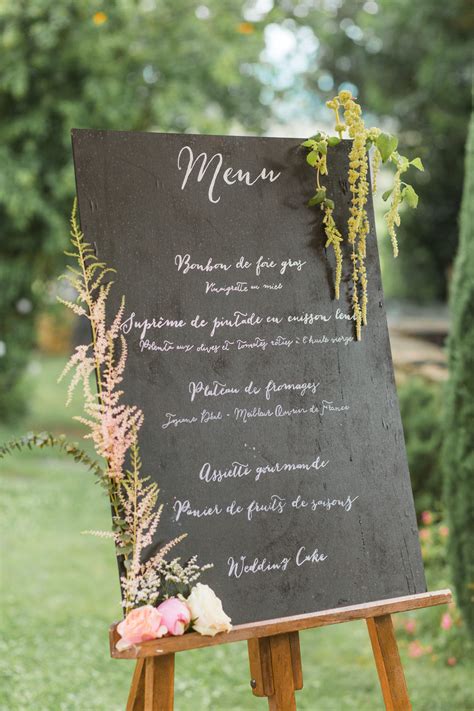 Menu
Bonbon de foie gras
Vinaigrette au miel
Suprême de pintade en cuisson lente
Polenta aux olives et tomates rôties à l'huile vierge
Plateau de fromages
Josiane Déal - Meilleur Ouvrier de France
Assiette gourmande
Panier de fruits de saisons
Wedding Cake